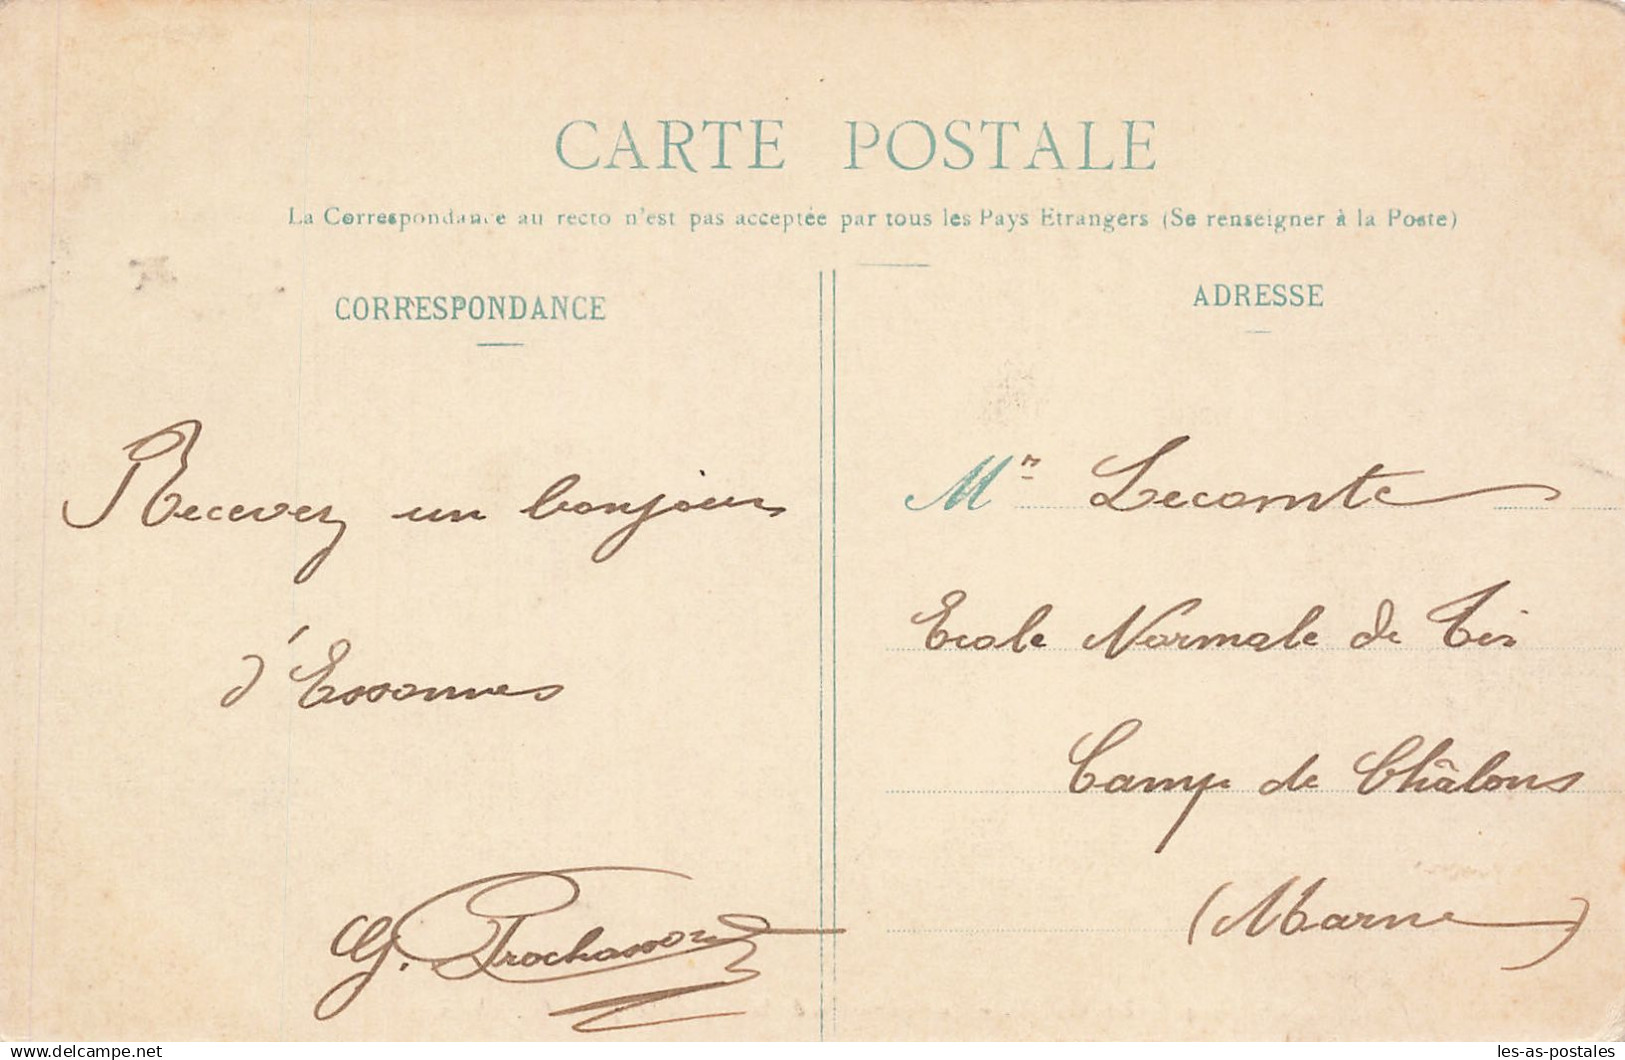 CARTE POSTALE
La Correspondance au recto n'est pas acceptée par tous les Pays Etrangers (Se renseigner à la Poste)
CORRESPONDANCE
Recevez un bonjour
d'Essonnes
G. Prochasson
ADRESSE
Mr Lecomte
Ecole Normale de Tir
Camp de Châlons
(Marne)
www.delcampe.net
les-as-postales